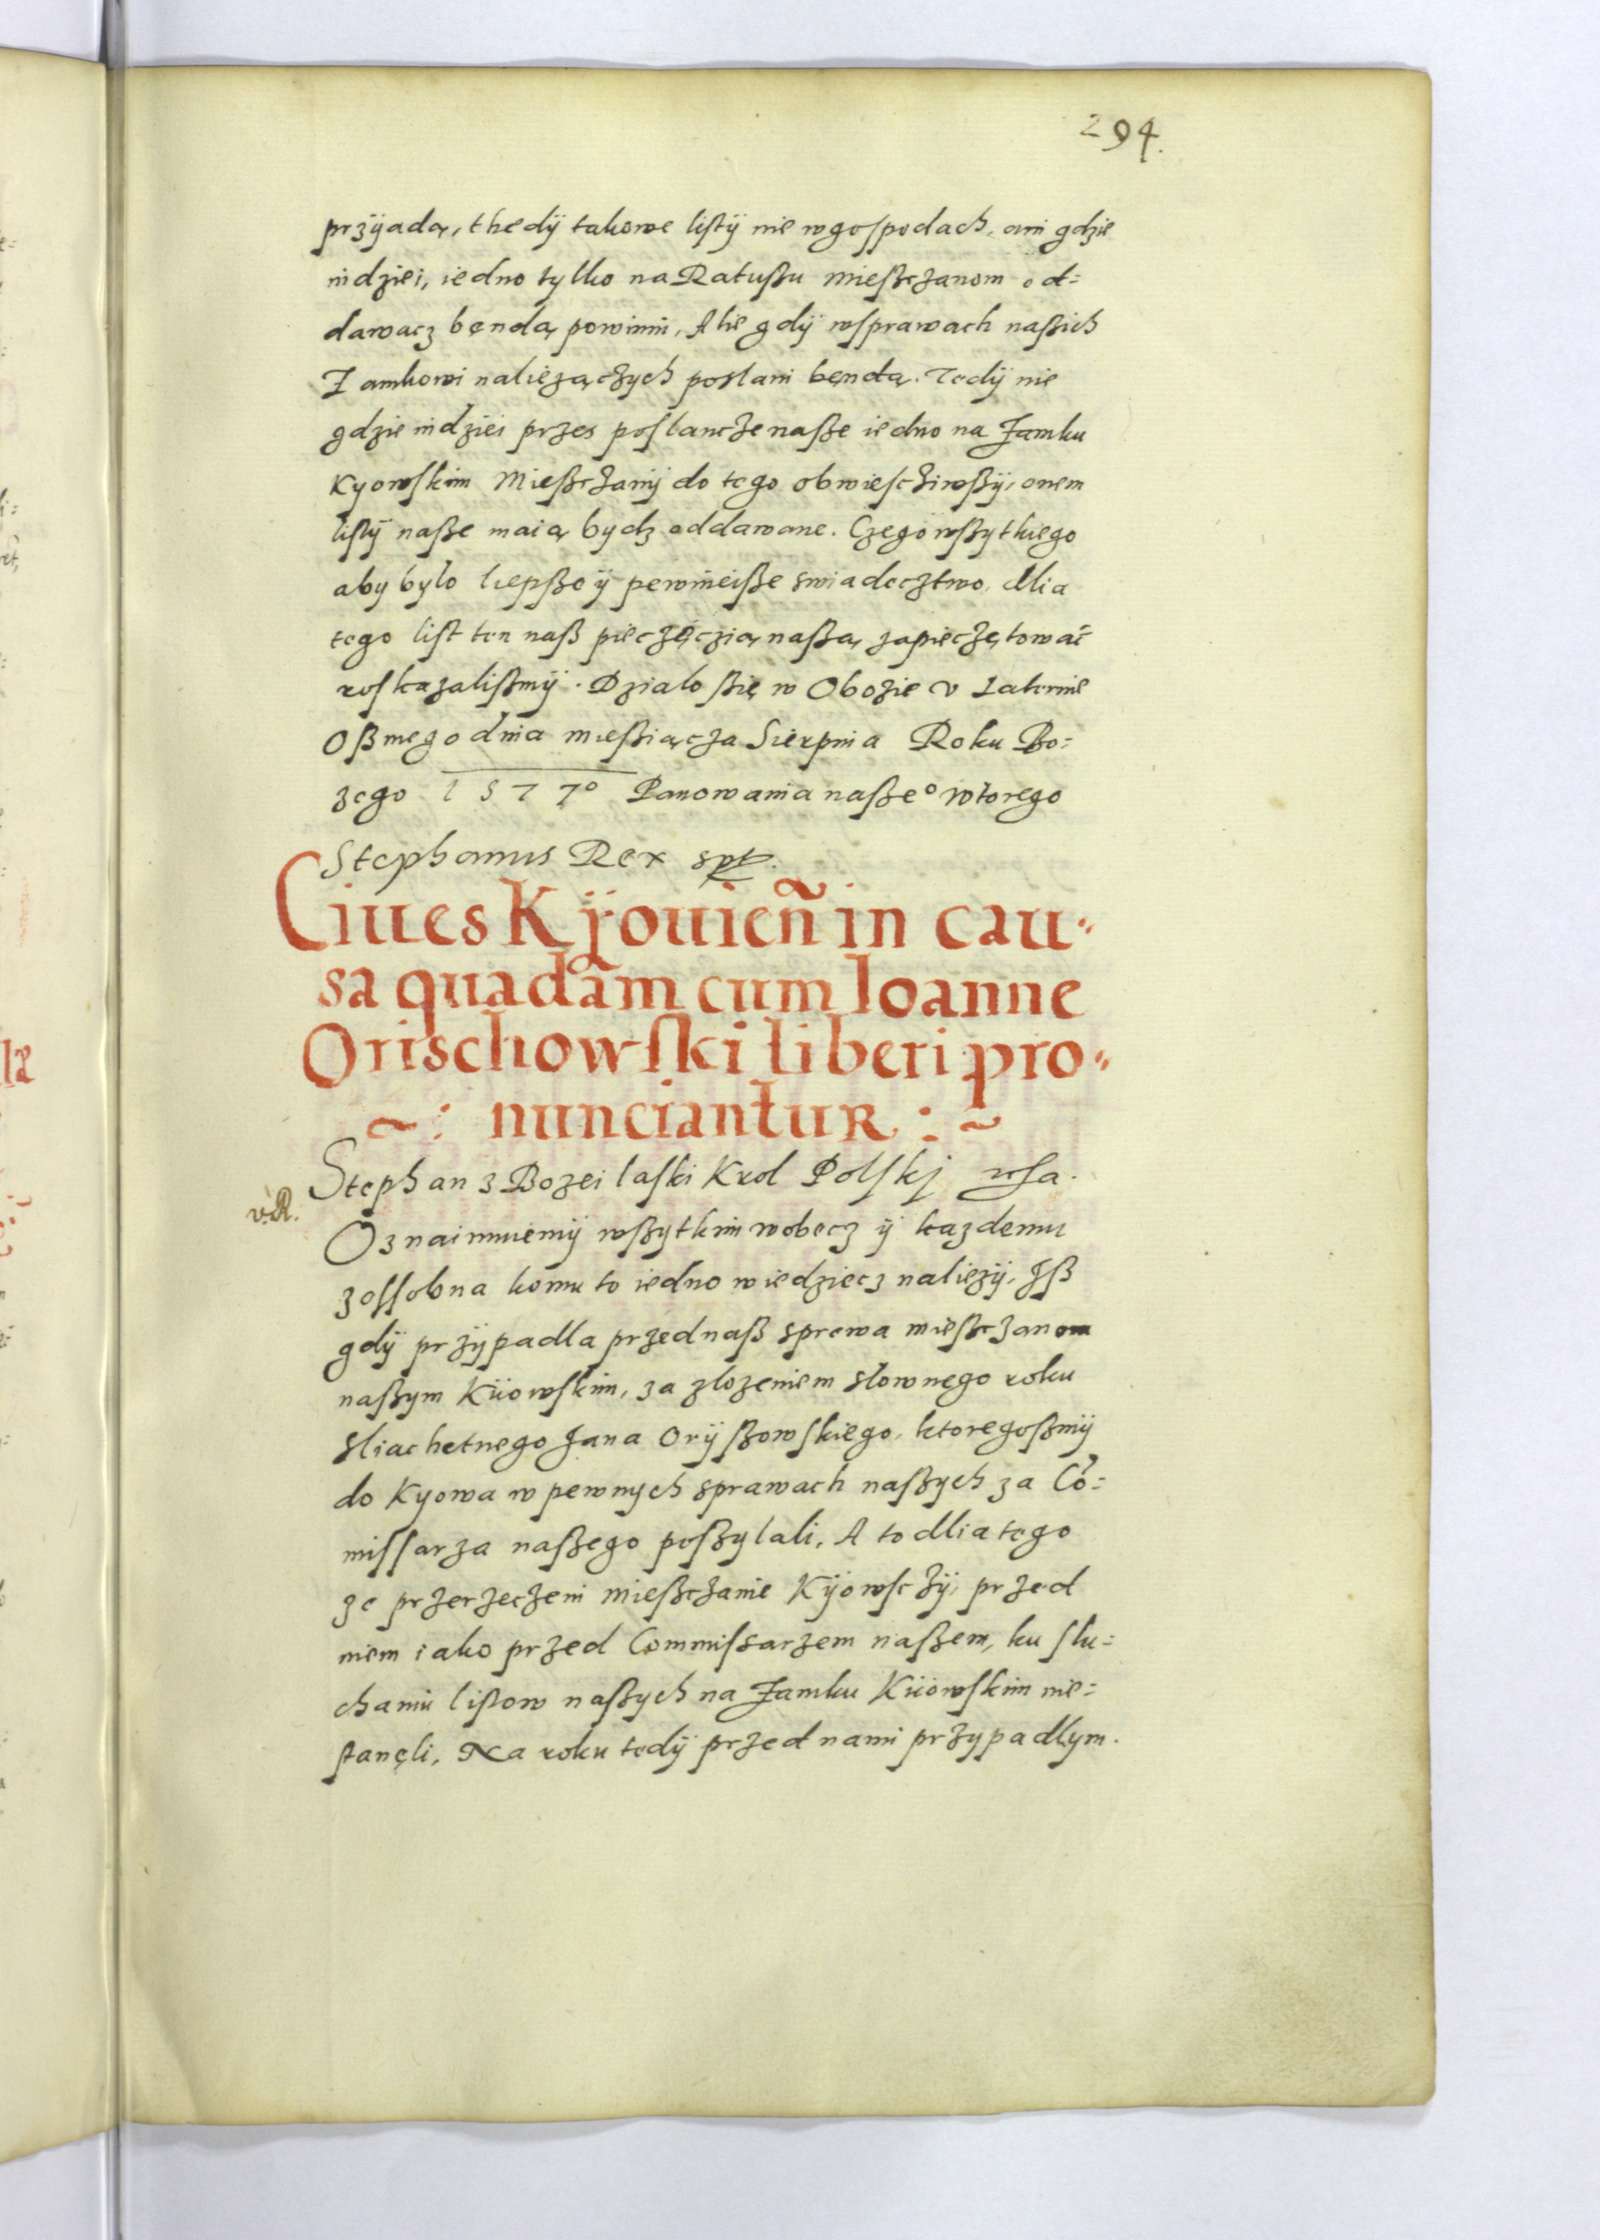 294.
przÿiadą, thedÿ takowe listÿ nie wgospodach, ani gdzie
indziei, iedno tylko na Ratußu mießczanom od=
dawacz bęndą powinni, Alie gdÿ wsprawach naßich
Zamkowi naliezączych poslani bęndą. Tedÿ nie
gdzie indziei przes poslancze naße iedno na Zamku
Kyowskim Mießczanÿ do tego obwiescziwßÿ, onem
listÿ naße maią bydz oddawane. Czego wßytkiego
aby bylo liepße ÿ pewnieiße swiadecztwo, dlia
tego list ten naß pieczęczią naßą zapieczętowac
roskazalißmÿ. Dzialo ßię w Obozie v Laternie
Oßmego dnia mießiącza Sierpnia Roku Bo=
zego 1577° Panowania naße° wtorego
Stephanus Rex spt.
Ciues Kÿouien̄ in cau=
sa quadam cum Ioanne
Orischowski liberi pro=
~: nunciantur :~
v.R.
Stephan z Bozei laski Krol Polskj wſa.
Oznaimuiemÿ wßytkim wobecz ÿ kazdemu
zossobna komu to iedno wiedziecz naliezÿ, Iß
gdÿ przÿpadla przed naß sprawa mießczanom
naßym Kiiowskim, za zlozeniem slownego roku
sliachetnego Jana Orÿßowskiego, ktoregoßmÿ
do Kyowa w pewnych sprawach naßych za Co=
missarza naßego poßylali, A to dlia tego
ze przerzeczeni mießczanie Kÿowsczÿ, przed
niem iako przed Commissarzem naßem, ku slu=
chaniu listow naßych na Zamku Kiiowskim nie=
stanęli, Na roku tedÿ przed nami przypadlym.